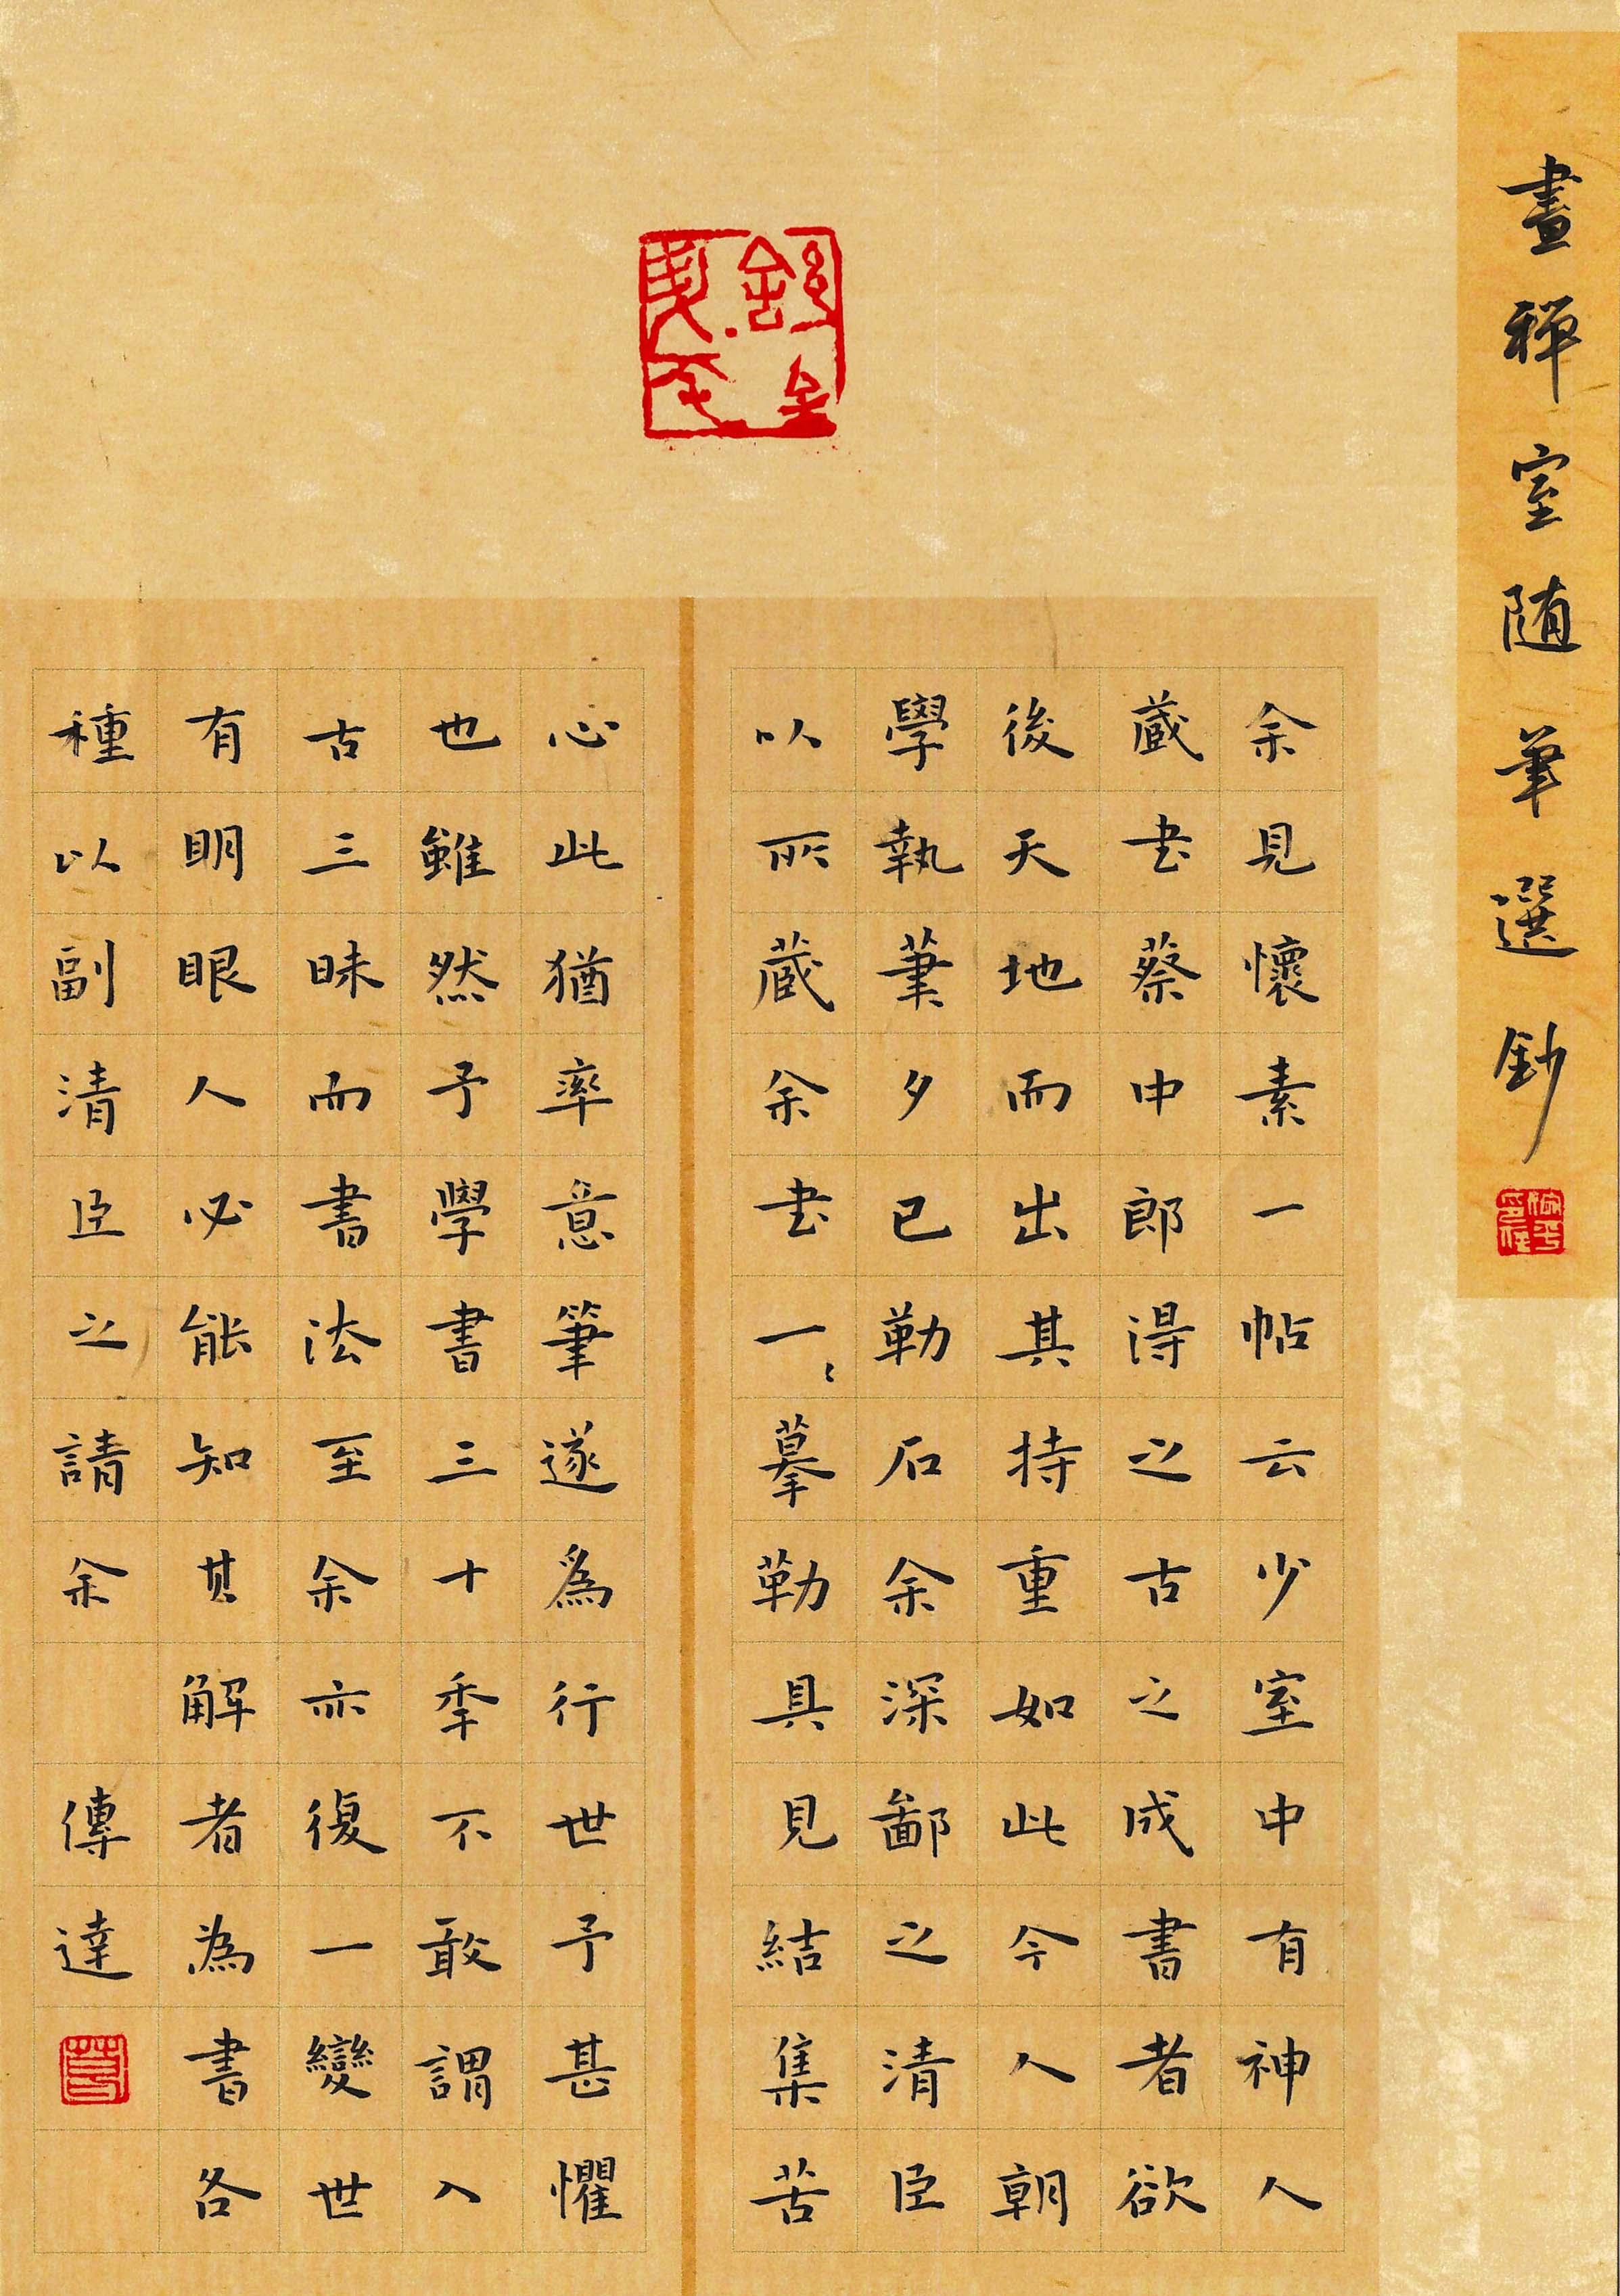 畫禪室随筆選鈔
余見懷素一帖云少室中有神人
蔵书蔡中郎得之古之成書者欲
後天地而出其持重如此今人朝
學執筆夕已勒石余深鄙之清臣
以所蔵余书一〻摹勒具見結集苦
心此猶率意筆遂爲行世予甚懼
也雖然予學書三十季不敢謂入
古三昧而書法至余亦復一變世
有眀眼人必能知其解者為書各
種以副清臣之請余
傳達